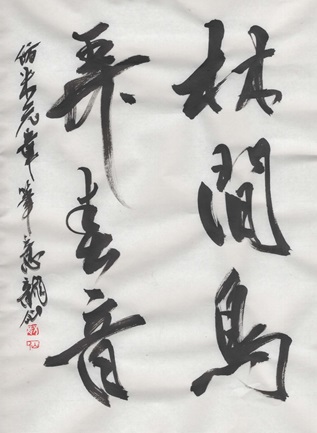 林間鳥
弄春音
仿米元章筆意龍仙